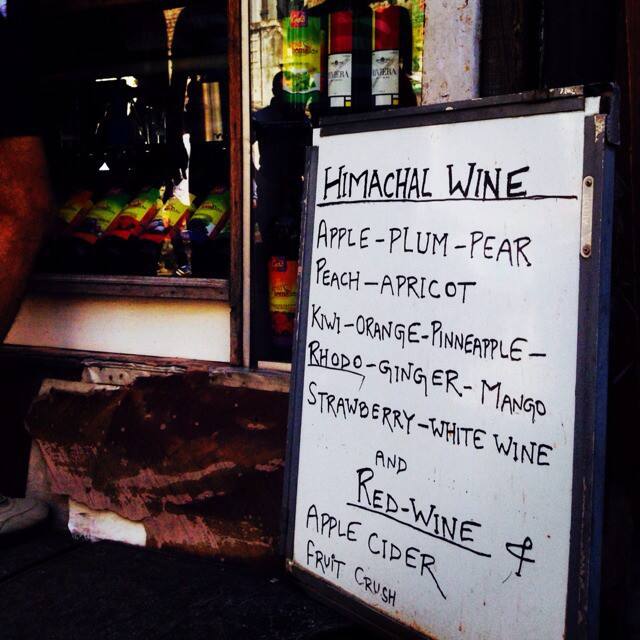 RIVIERA
RIVIERA
HIMACHAL WINE
APPLE-PLUM-PEAR
PEACH-APRICOT
KIWI-ORANGE-PINNEAPPLE-
RHODO-GINGER-MANGO
STRAWBERRY-WHITE WINE
AND
RED-WINE &
APPLE CIDER
FRUIT CRUSH